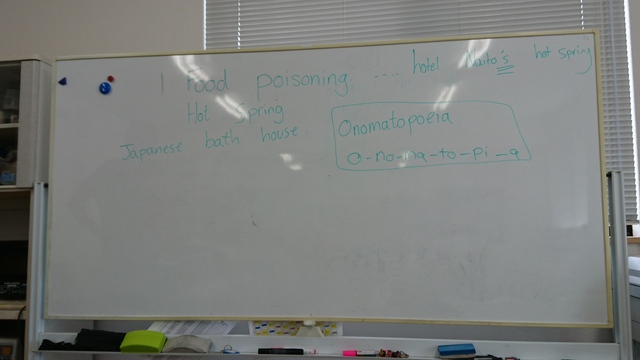 Food poisoning .... hotel Naito's hot spring
Hot Spring
Japanese bath house
Onomatopoeia
o-no-ma-to-pi-a